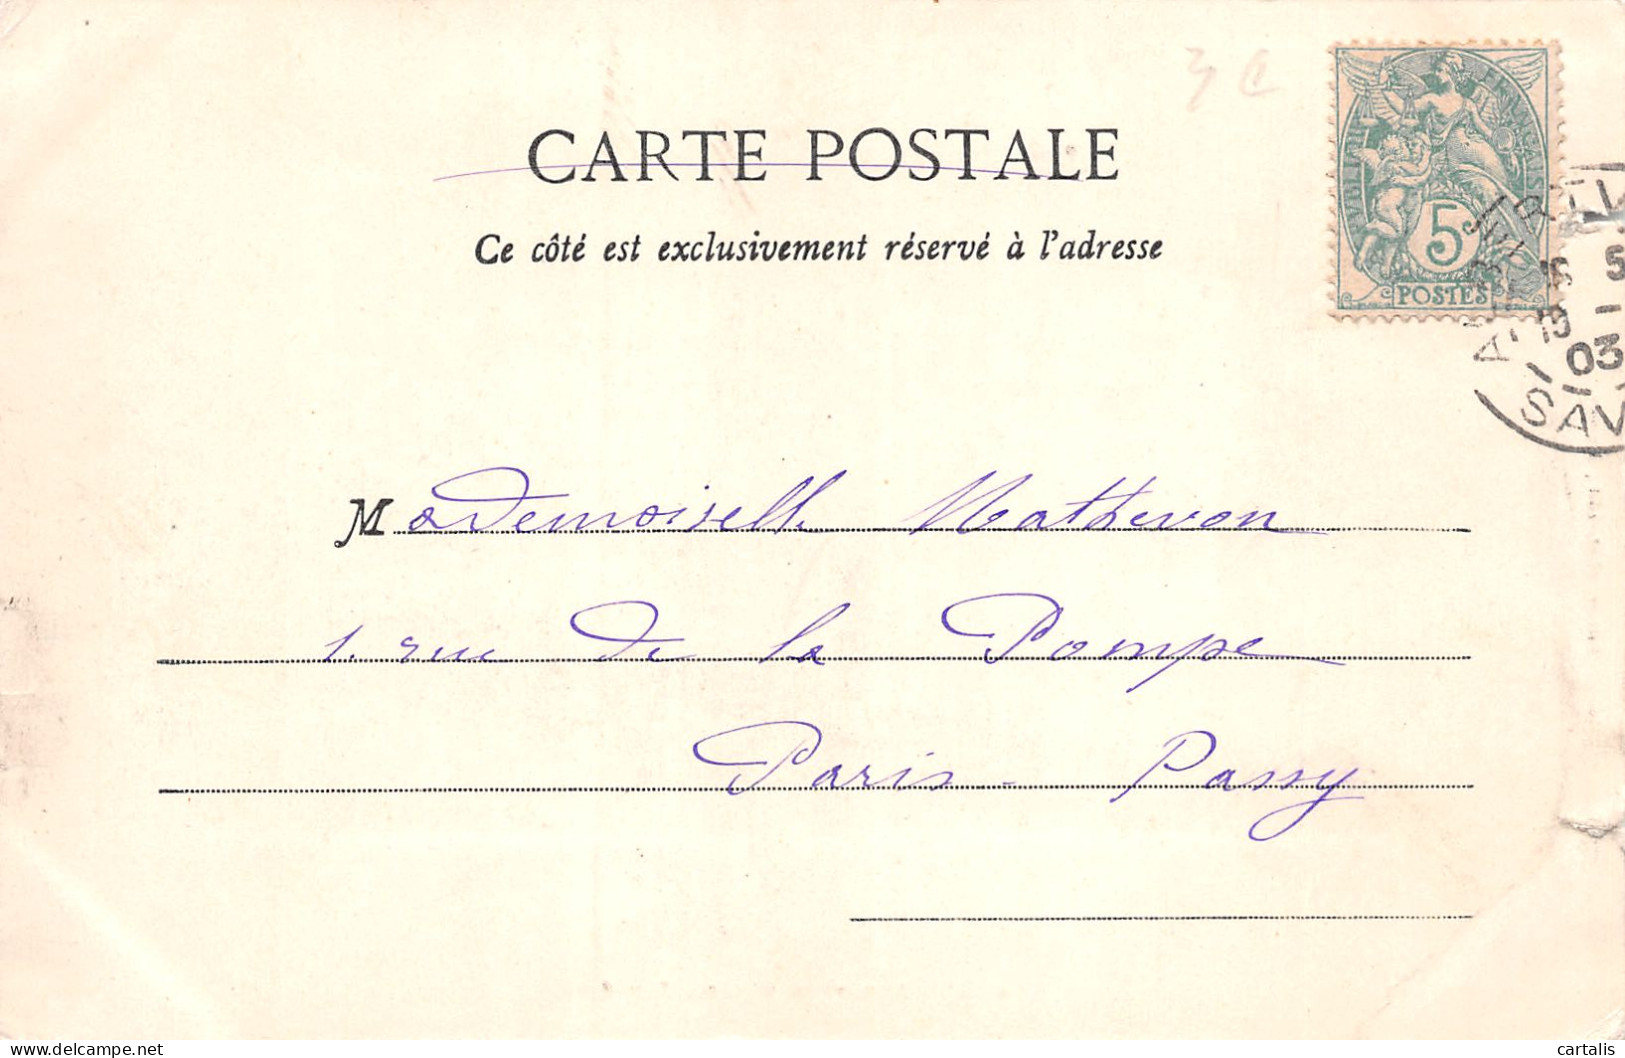 3 c
CARTE POSTALE
Ce côté est exclusivement réservé à l'adresse
RÉPUBLIQUE FRANÇAISE
5c
POSTES
16 5
19 -
03
SAV
Mademoiselle Mathevon
1. rue de la Pompe
Paris - Passy
www.delcampe.net
cartalis